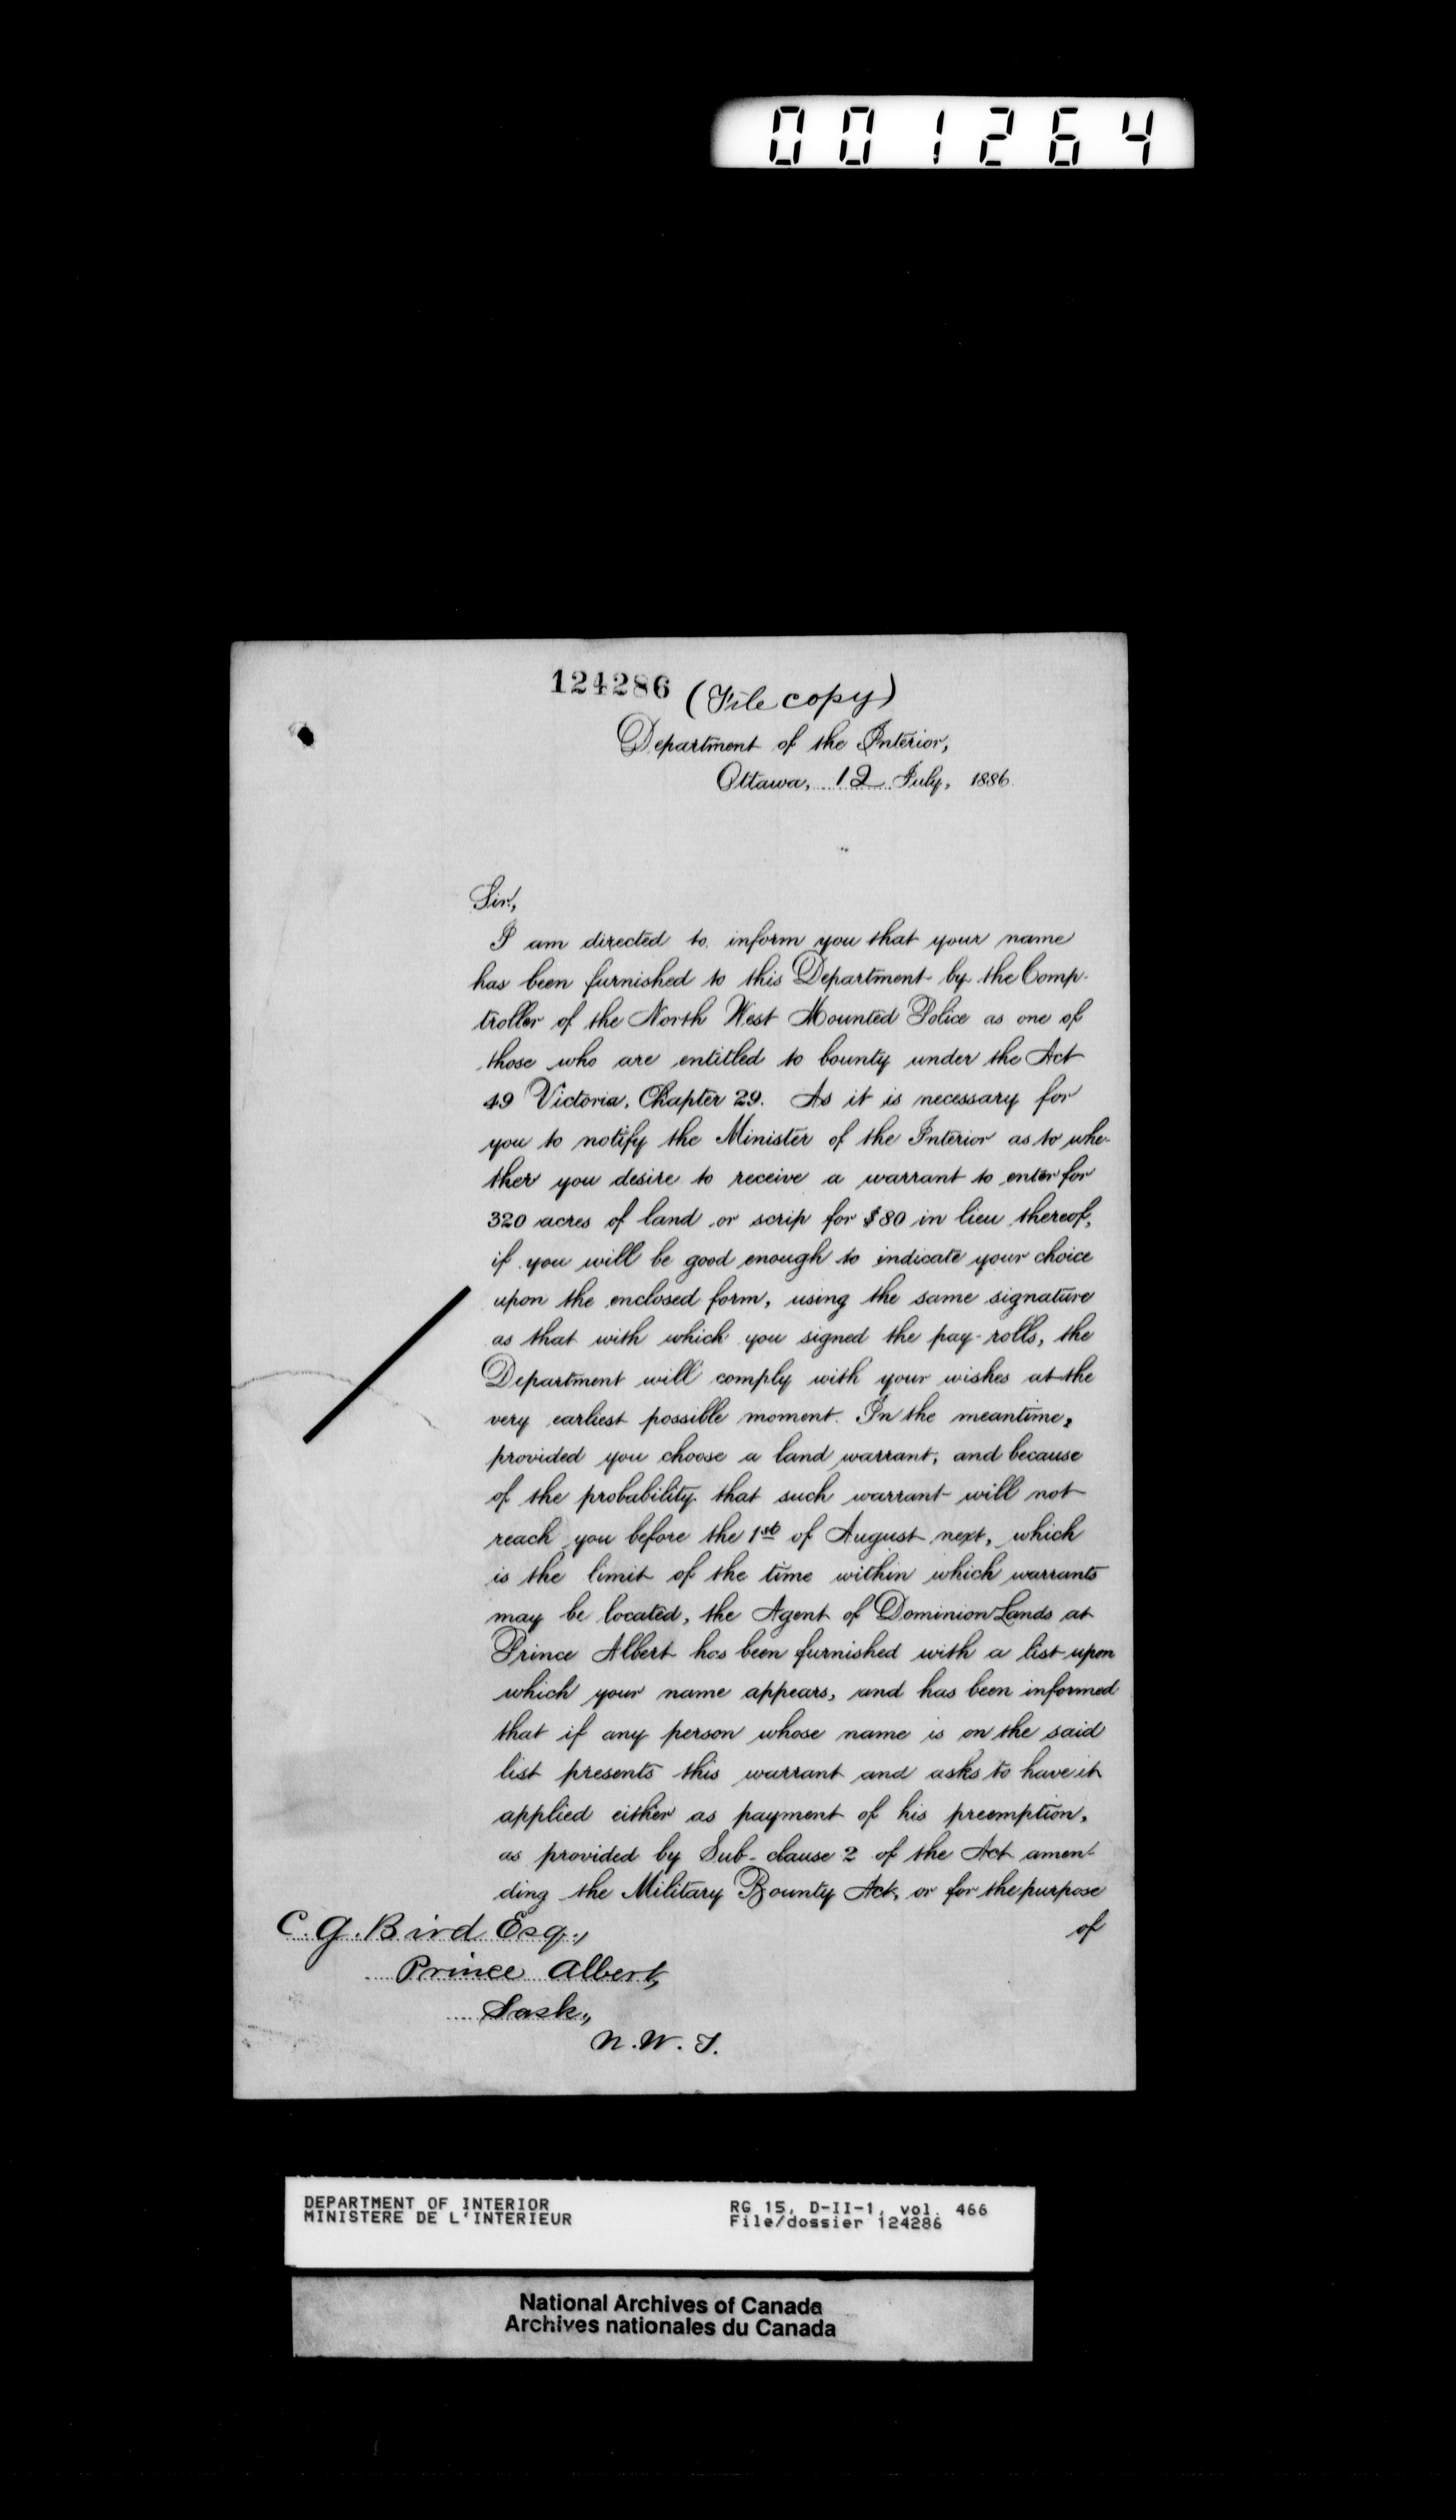 001264
124286 (File copy)
Department of the Interior,
Ottawa, 12 July, 1886.
Sir,
I am directed to inform you that your name
has been furnished to this Department by the Comp-
troller of the North West Mounted Police as one of
those who are entitled to bounty under the Act
49 Victoria, Chapter 29. As it is necessary for
you to notify the Minister of the Interior as to whe-
ther you desire to receive a warrant to enter for
320 acres of land or scrip for $80 in lieu thereof,
if you will be good enough to indicate your choice
upon the enclosed form, using the same signature
as that with which you signed the pay-rolls, the
Department will comply with your wishes at the
very earliest possible moment. In the meantime,
provided you choose a land warrant, and because
of the probability that such warrant will not
reach you before the 1st of August next, which
is the limit of the time within which warrants
may be located, the Agent of Dominion Lands at
Prince Albert has been furnished with a list upon
which your name appears, and has been informed
that if any person whose name is on the said
list presents this warrant and asks to have it
applied either as payment of his preemption,
as provided by Sub-clause 2 of the Act amen-
ding the Military Bounty Act, or for the purpose
of
C. G. Bird Esq.,
Prince Albert,
Sask.,
N.W.T.
DEPARTMENT OF INTERIOR RG 15, D-II-1, vol. 466
MINISTERE DE L'INTERIEUR File/dossier 124286
National Archives of Canada
Archives nationales du Canada